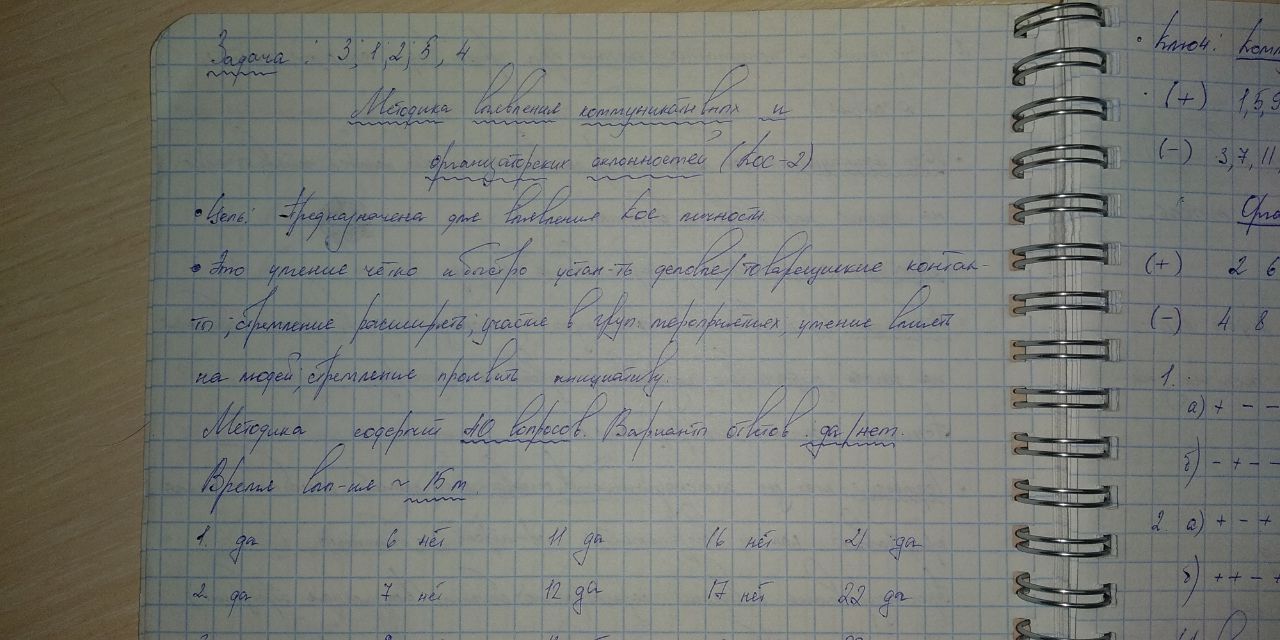 Задача: 3; 1; 2; 5, 4
Методика выявления коммуникативных и
организаторских склонностей (КОС-2)
• Цель: Предназначена для выявления КОС личности.
• Это умение чётко и быстро устан-ть деловые/товарищеские контак-
ты; стремление расширять; участие в груп. мероприятиях, умение влиять
на людей; стремление проявить инициативу.
Методика содержит 40 вопросов. Варианты ответов да/нет.
Время вып-ия ~ 15 м.
1. да 6 нет 11 да 16 нет 21 да
2. да 7 нет 12 да 17 нет 22 да
• Ключ: Комм
(+) 1, 5, 9
(-) 3, 7, 11,
Орга
(+) 2 6
(-) 4 8
1.
а) + - -
б) - + - -
2. а) + - +
б) + + - +